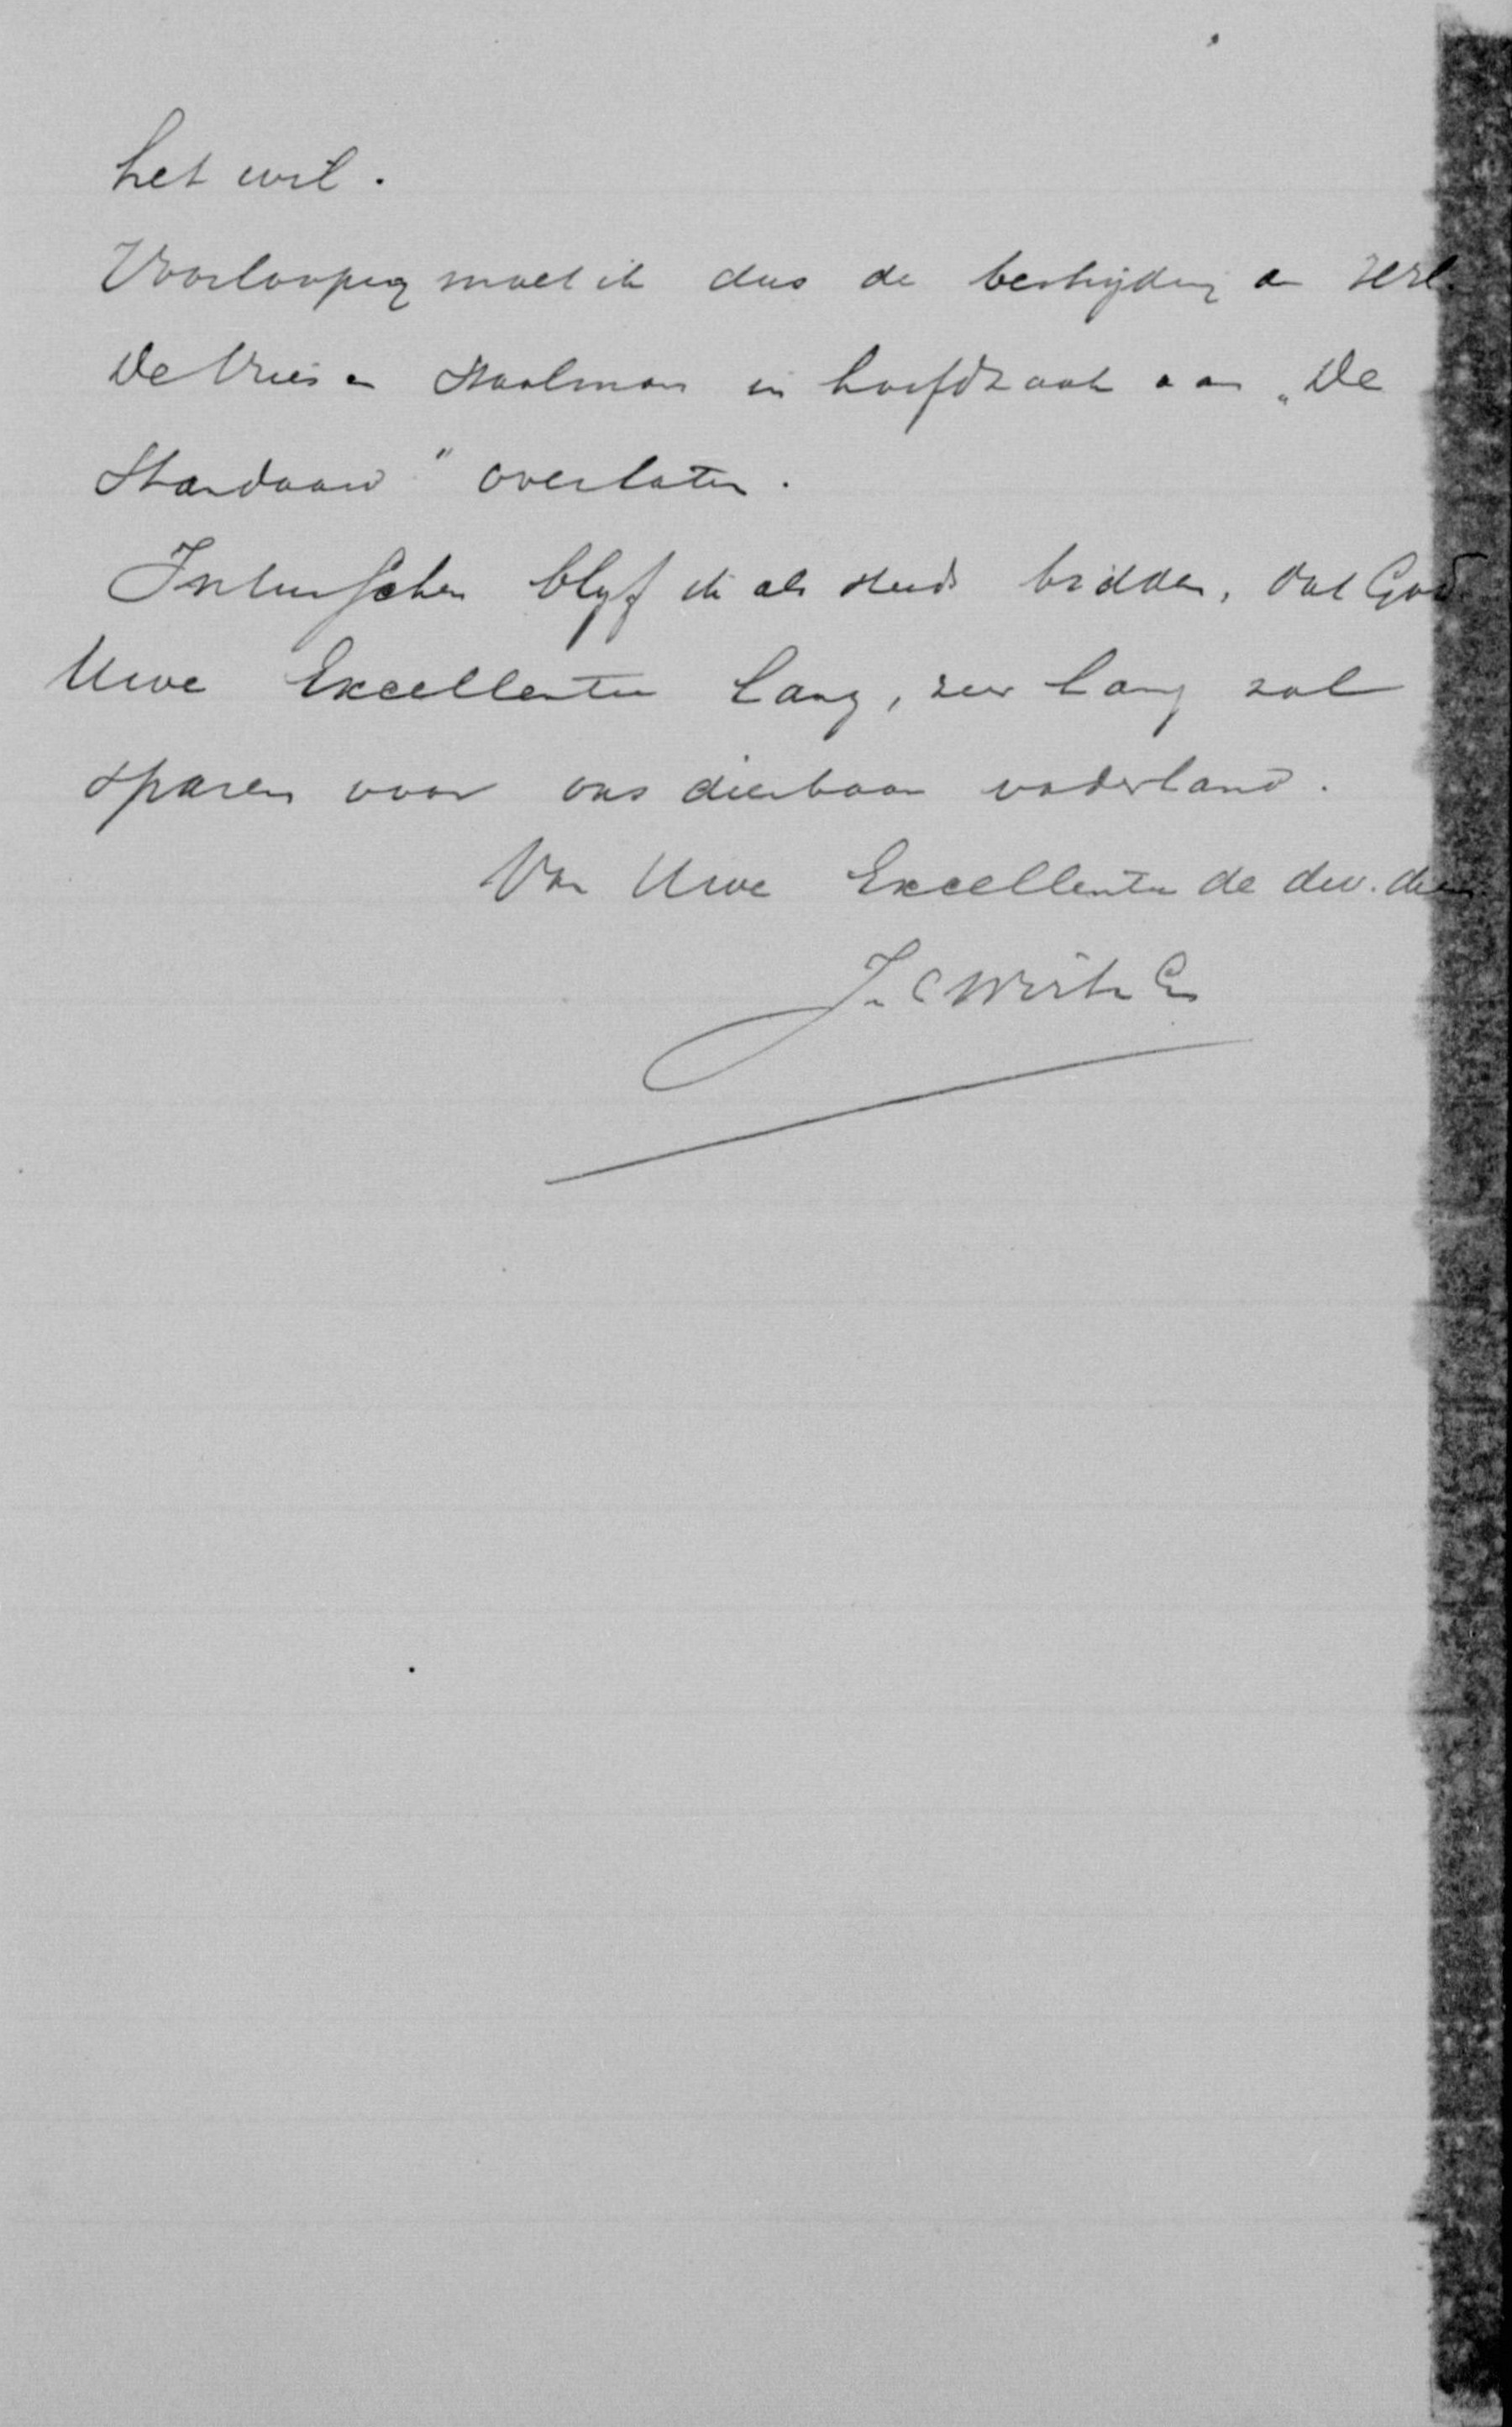 het wil.
Voorloopig moet ik dus de bestrijding der HH.
De Vries en Staalman in hoofdzaak aan „De
Standaard" overlaten.
Intusschen blijf ik als steeds bidden, dat God
Uwe Excellentie lang, zeer lang zal
sparen voor ons dierbaar vaderland.
Van Uwe Excellentie de dw. dien.
J. C. Wirtz Cz